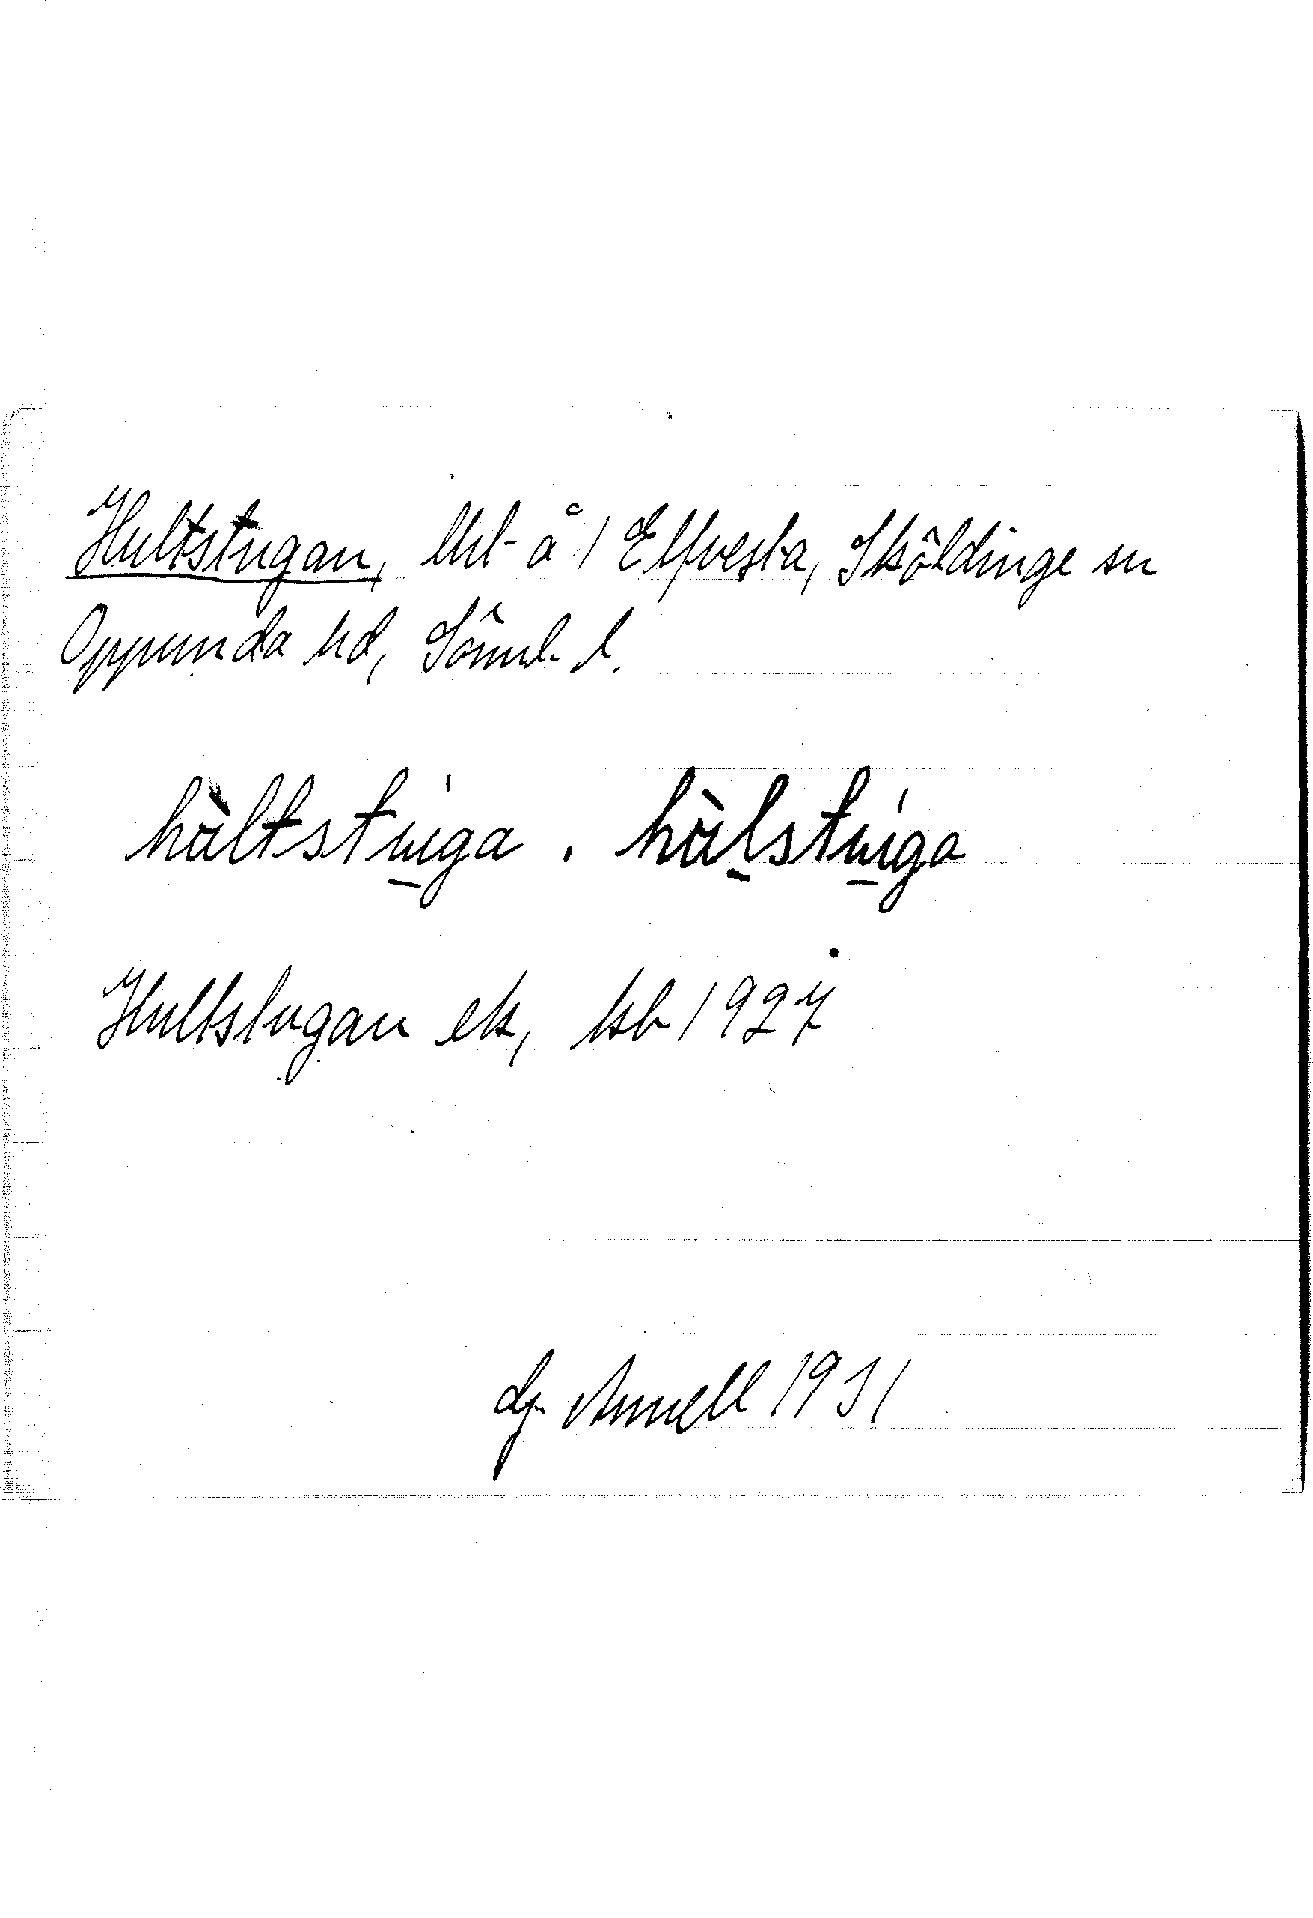 Hultstugan, lht å 1 Elfvesta, Sköldinge sn
Oppunda hd, Söml. l.
hùltstuiga . hùlstuiga
Hultstugan ek, kb 1927
1931